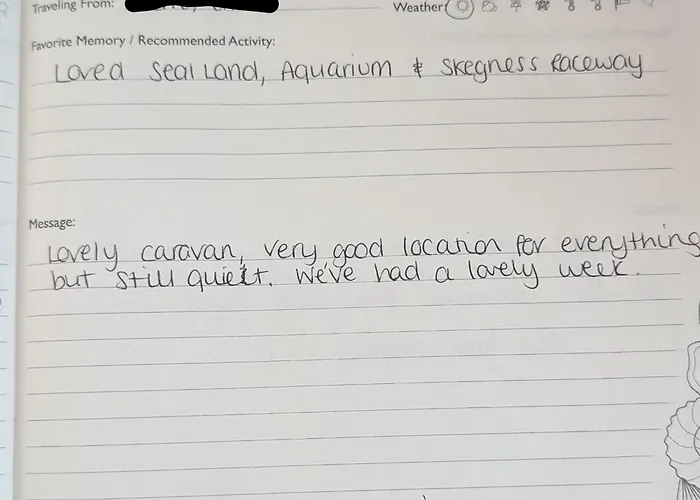 Traveling From:
Weather
Favorite Memory / Recommended Activity:
Loved Seal Land, Aquarium & Skegness Raceway
Message:
Lovely caravan, very good location for everything
but still quiet. We've had a lovely week.